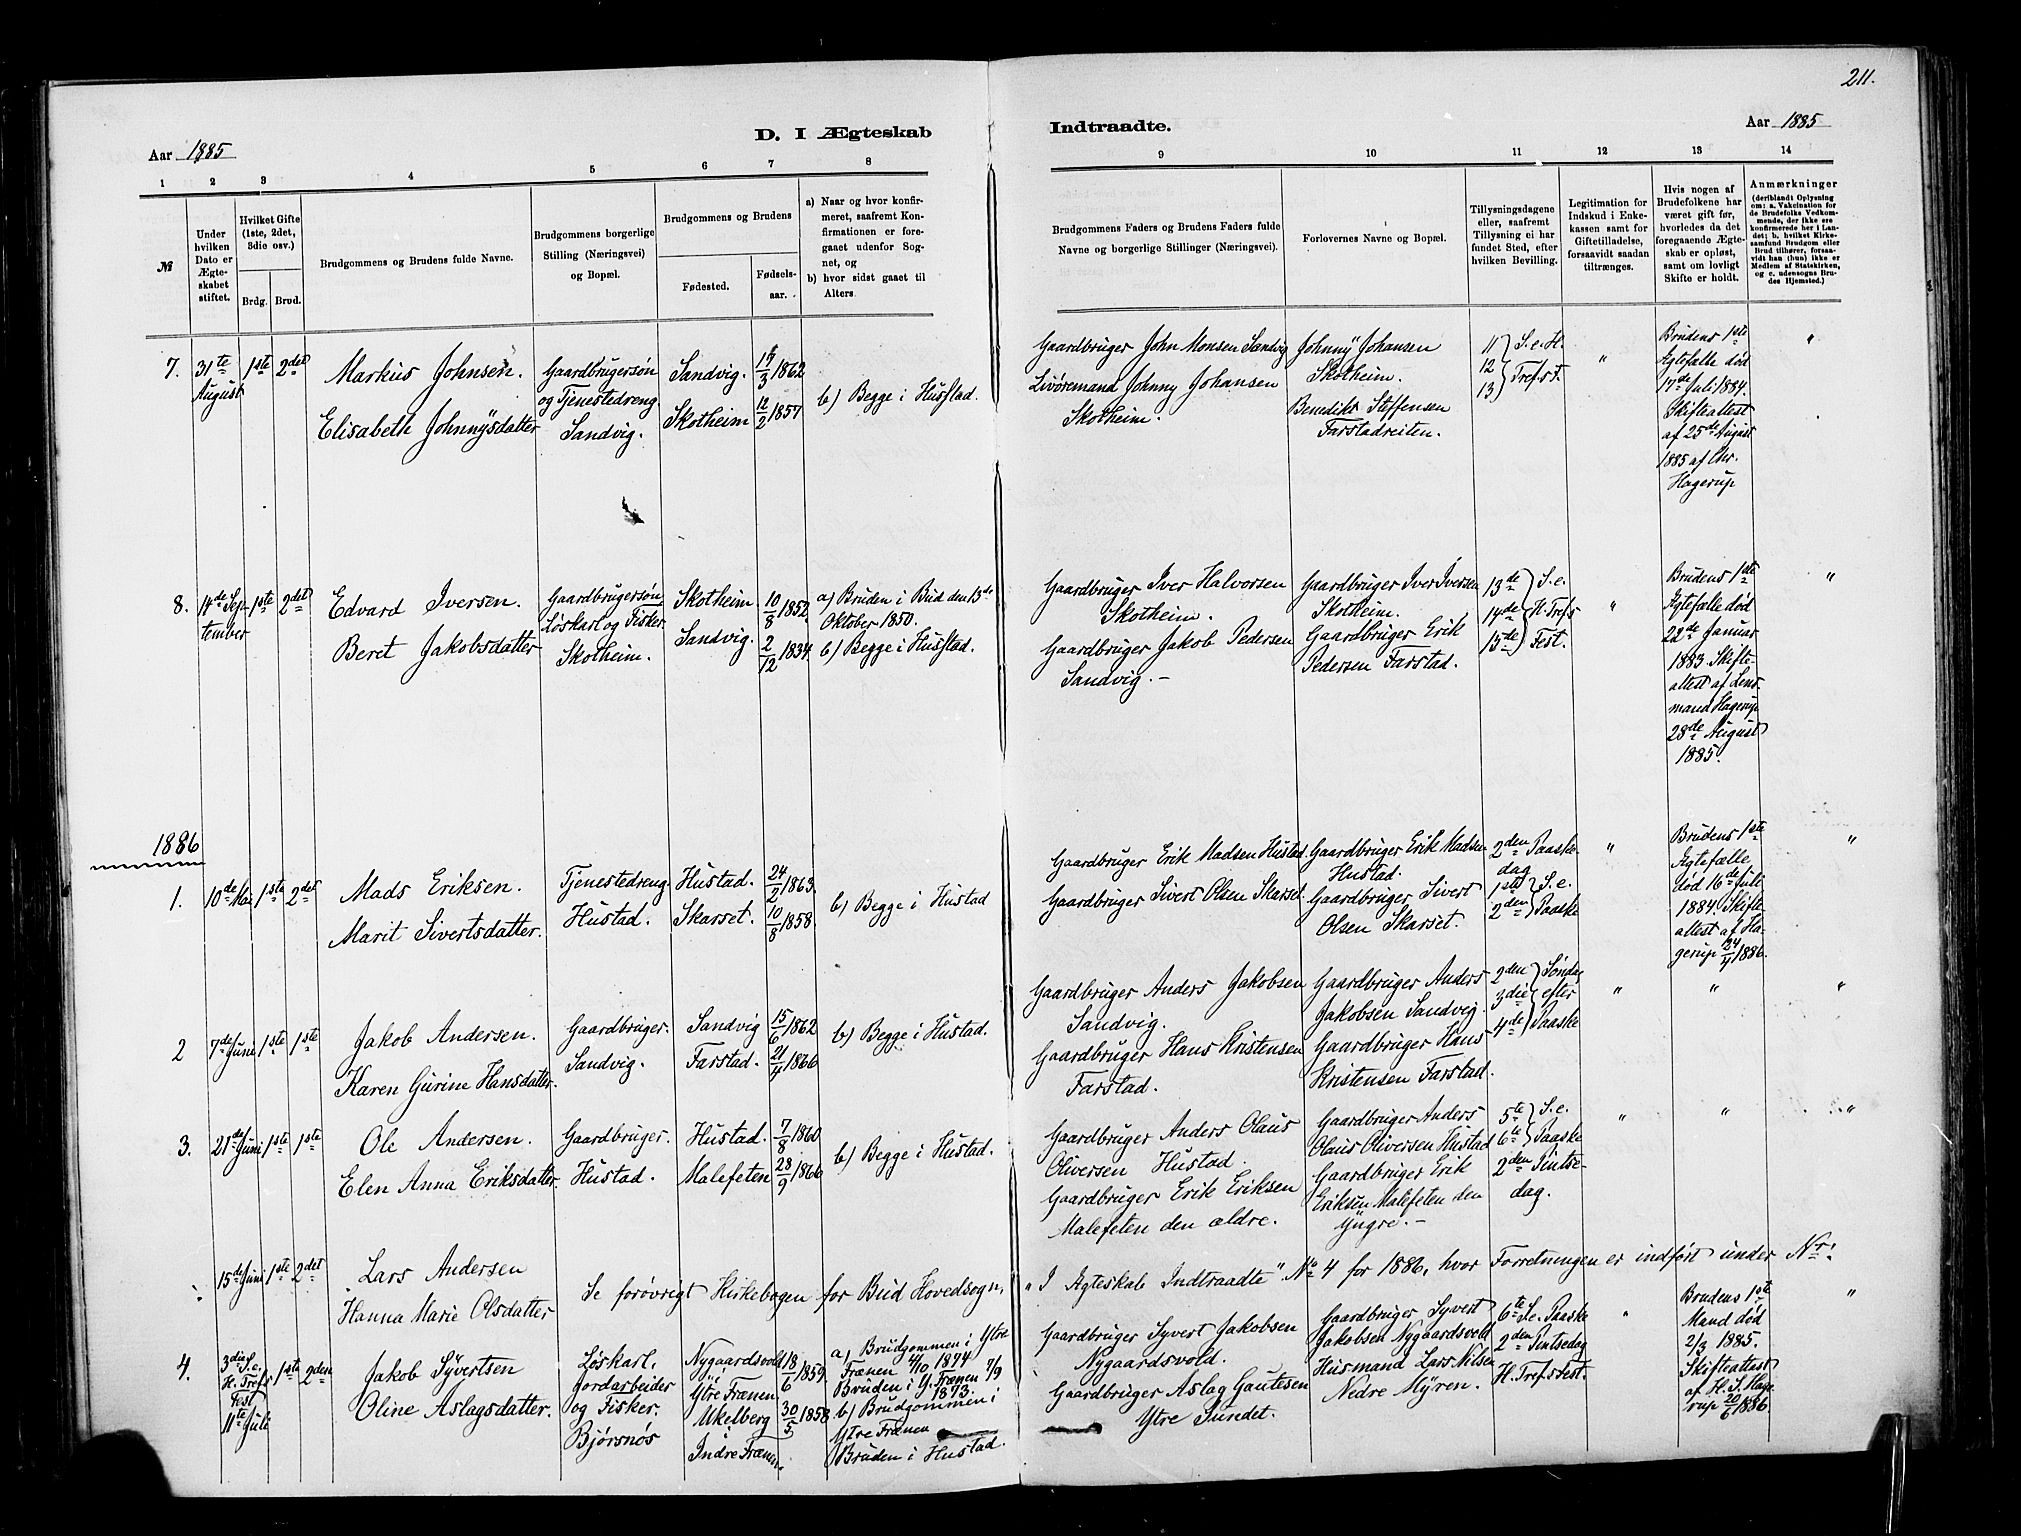 211.
D. I Ægteskab Indtraadte.
Aar 1885
Aar 1885
1 2 3 4 5 6 7 8 9 10 11 12 13 14
№
Under hvilken Dato er Ægteskabet stiftet.
Hvilket Gifte (1ste, 2det, 3die osv.)
Brdg. Brud.
Brudgommens og Brudens fulde Navne.
Brudgommens borgerlige Stilling (Næringsvei) og Bopæl.
Brudgommens og Brudens
Fødested. Fødselsaar.
a) Naar og hvor konfirmeret, saafremt Konfirmationen er foregaaet udenfor Sognet, og
b) hvor sidst gaaet til Alters.
Brudgommens Faders og Brudens Faders fulde Navne og borgerlige Stillinger (Næringsvei).
Forlovernes Navne og Bopæl.
Tillysningsdagene eller, saafremt Tillysning ei har fundet Sted, efter hvilken Bevilling.
Legitimation for Indskud i Enkekassen samt for Giftetilladelse, forsaavidt saadan tiltrænges.
Hvis nogen af Brudefolkene har været gift før, hvorledes da det foregaaende Ægteskab er opløst, samt om lovligt Skifte er holdt.
Anmærkninger (deriblandt Oplysning om: a. Vakcination for de Brudefolks Vedkommende, der ikke ere konfirmerede her i Landet; b. hvilket Kirkesamfund Brudgom eller Brud tilhører, forsaavidt han (hun) ikke er Medlem af Statskirken, og c. udensogns Brudes Hjemsted.)
7. 31te August 1ste 2det
Markus Johnsen.
Elisabeth Johnnysdatter
Gaardbrugersøn
og Tjenestedreng
Sandvig.
Sandvig. 1862
Skotheim 12/2 1857
b) Begge i Hustad.
Gaardbruger John Monsen Sandvig
Livøremand Johnny Johansen
Skotheim.
Johnny Johansen
Skotheim.
Benedikt Steffensen
Farstadreiten.
11 12 13 } S. e. H. Tref.s F.
"
Brudens 1ste
Ægtefælle død
17de Juli 1884.
Skifteattest
af 25de August
1885 af
Hagerup
"
8. 14de September 1ste 2det
Edvard Iversen.
Beret Jakobsdatter
Gaardbrugersøn
Løskarl og Fisker
Skotheim.
Skotheim 10/8 1852.
Sandvig. 2/12 1834
a) Bruden i Bud den 13de
Oktober 1850.
b) Begge i Hustad.
Gaardbruger Iver Halvorsen
Skotheim.
Gaardbruger Jakob Pedersen
Sandvig. –
Gaardbruger Iver Iversen
Skotheim.
Gaardbruger Erik
Pedersen Farstad.
13de 14de 15de } S. e. H. Tref.s Fest.
"
Brudens 1ste
Ægtefælle død
22de Januar
1883. Skifte-
attest af Lens-
mand Hagerup
28de August
1885.
"
1886
1. 10de Mai 1ste 2det
Mads Eriksen.
Marit Sivertsdatter.
Tjenestedreng
Hustad.
Hustad. 24/2 1863.
Skarset. 10/8 1858.
b) Begge i Hustad
Gaardbruger Erik Madsen Hustad
Gaardbruger Sivert Olsen Skarset.
Gaardbruger Erik Madsen
Hustad.
Gaardbruger Sivert
Olsen Skarset.
2den Paaske-
dag
1ste 2den } S. e. Paaske
"
Brudens 1ste
Ægtefælle
død 16de Juli
1884. Skifte-
attest af Ha-
gerup 24/4 1886.
"
2 7de Juni 1ste 1ste
Jakob Andersen.
Karen Gurine Hansdatter.
Gaardbruger.
Sandvig.
Sandvig 15/6 1862
Farstad. 21/4 1866
b) Begge i Hustad.
Gaardbruger Anders Jakobsen
Sandvig.
Gaardbruger Hans Kristensen
Farstad.
Gaardbruger Anders
Jakobsen Sandvig.
Gaardbruger Hans
Kristensen Farstad.
2den 3die 4de } Søndag efter Paaske
" " "
3. 21de Juni 1ste 1ste
Ole Andersen.
Elen Anna Eriksdatter.
Gaardbruger.
Hustad.
Hustad. 7/8 1860
Malefeten 28/9 1866
b) Begge i Hustad.
Gaardbruger Anders Olaus
Oliversen Hustad.
Gaardbruger Erik Eriksen
Malefeten den ældre.
Gaardbruger Anders
Olaus Oliversen Hustad
Gaardbruger Erik
Eriksen Malefeten den
yngre. –
5te 6te } S. e. Paaske
2den Pintse-
dag.
" " "
15de Juni 1ste 2det
Lars Andersen
Hanna Marie Olsdatter
Se forøvrigt Kirkebogen for Bud Hovedsogn, "I Ægteskab Indtraadte" No 4 for 1886, hvor Forretningen er indført under Nr:
4. 3die S. e. H. Tref.s Fest 11te Juli 1ste 2den
Jakob Syvertsen
Oline Aslagsdatter.
Løskarl,
Jordarbeider
og Fisker.
Bjørsnøs
Nygaardsvold i Ytre Frænen 18/6 1859.
Mkelberg Indre Frænen. 30/5 1858
a) Brudgommen i Ytre
Frænen 4/10 1874
Bruden i Y. Frænen 7/9
1873.
b) Brudgommen i
Ytre Frænen
Bruden i Hustad.
Gaardbruger Syvert Jakobsen
Nygaardsvold.
Gaardbruger Aslag Gautesen
Ytre Sundet.
Gaardbruger Syvert
Jakobsen Nygaardsvold
Husmand Lars Nilsen
Nedre Myren.
6te S. e. Paaske
2den Pintsedag
H. Tref.s Fest.
"
Brudens 1ste
Mand død
2/3 1885.
Skifteattest
af H. S. Hage-
rup 20/6 1886.
"